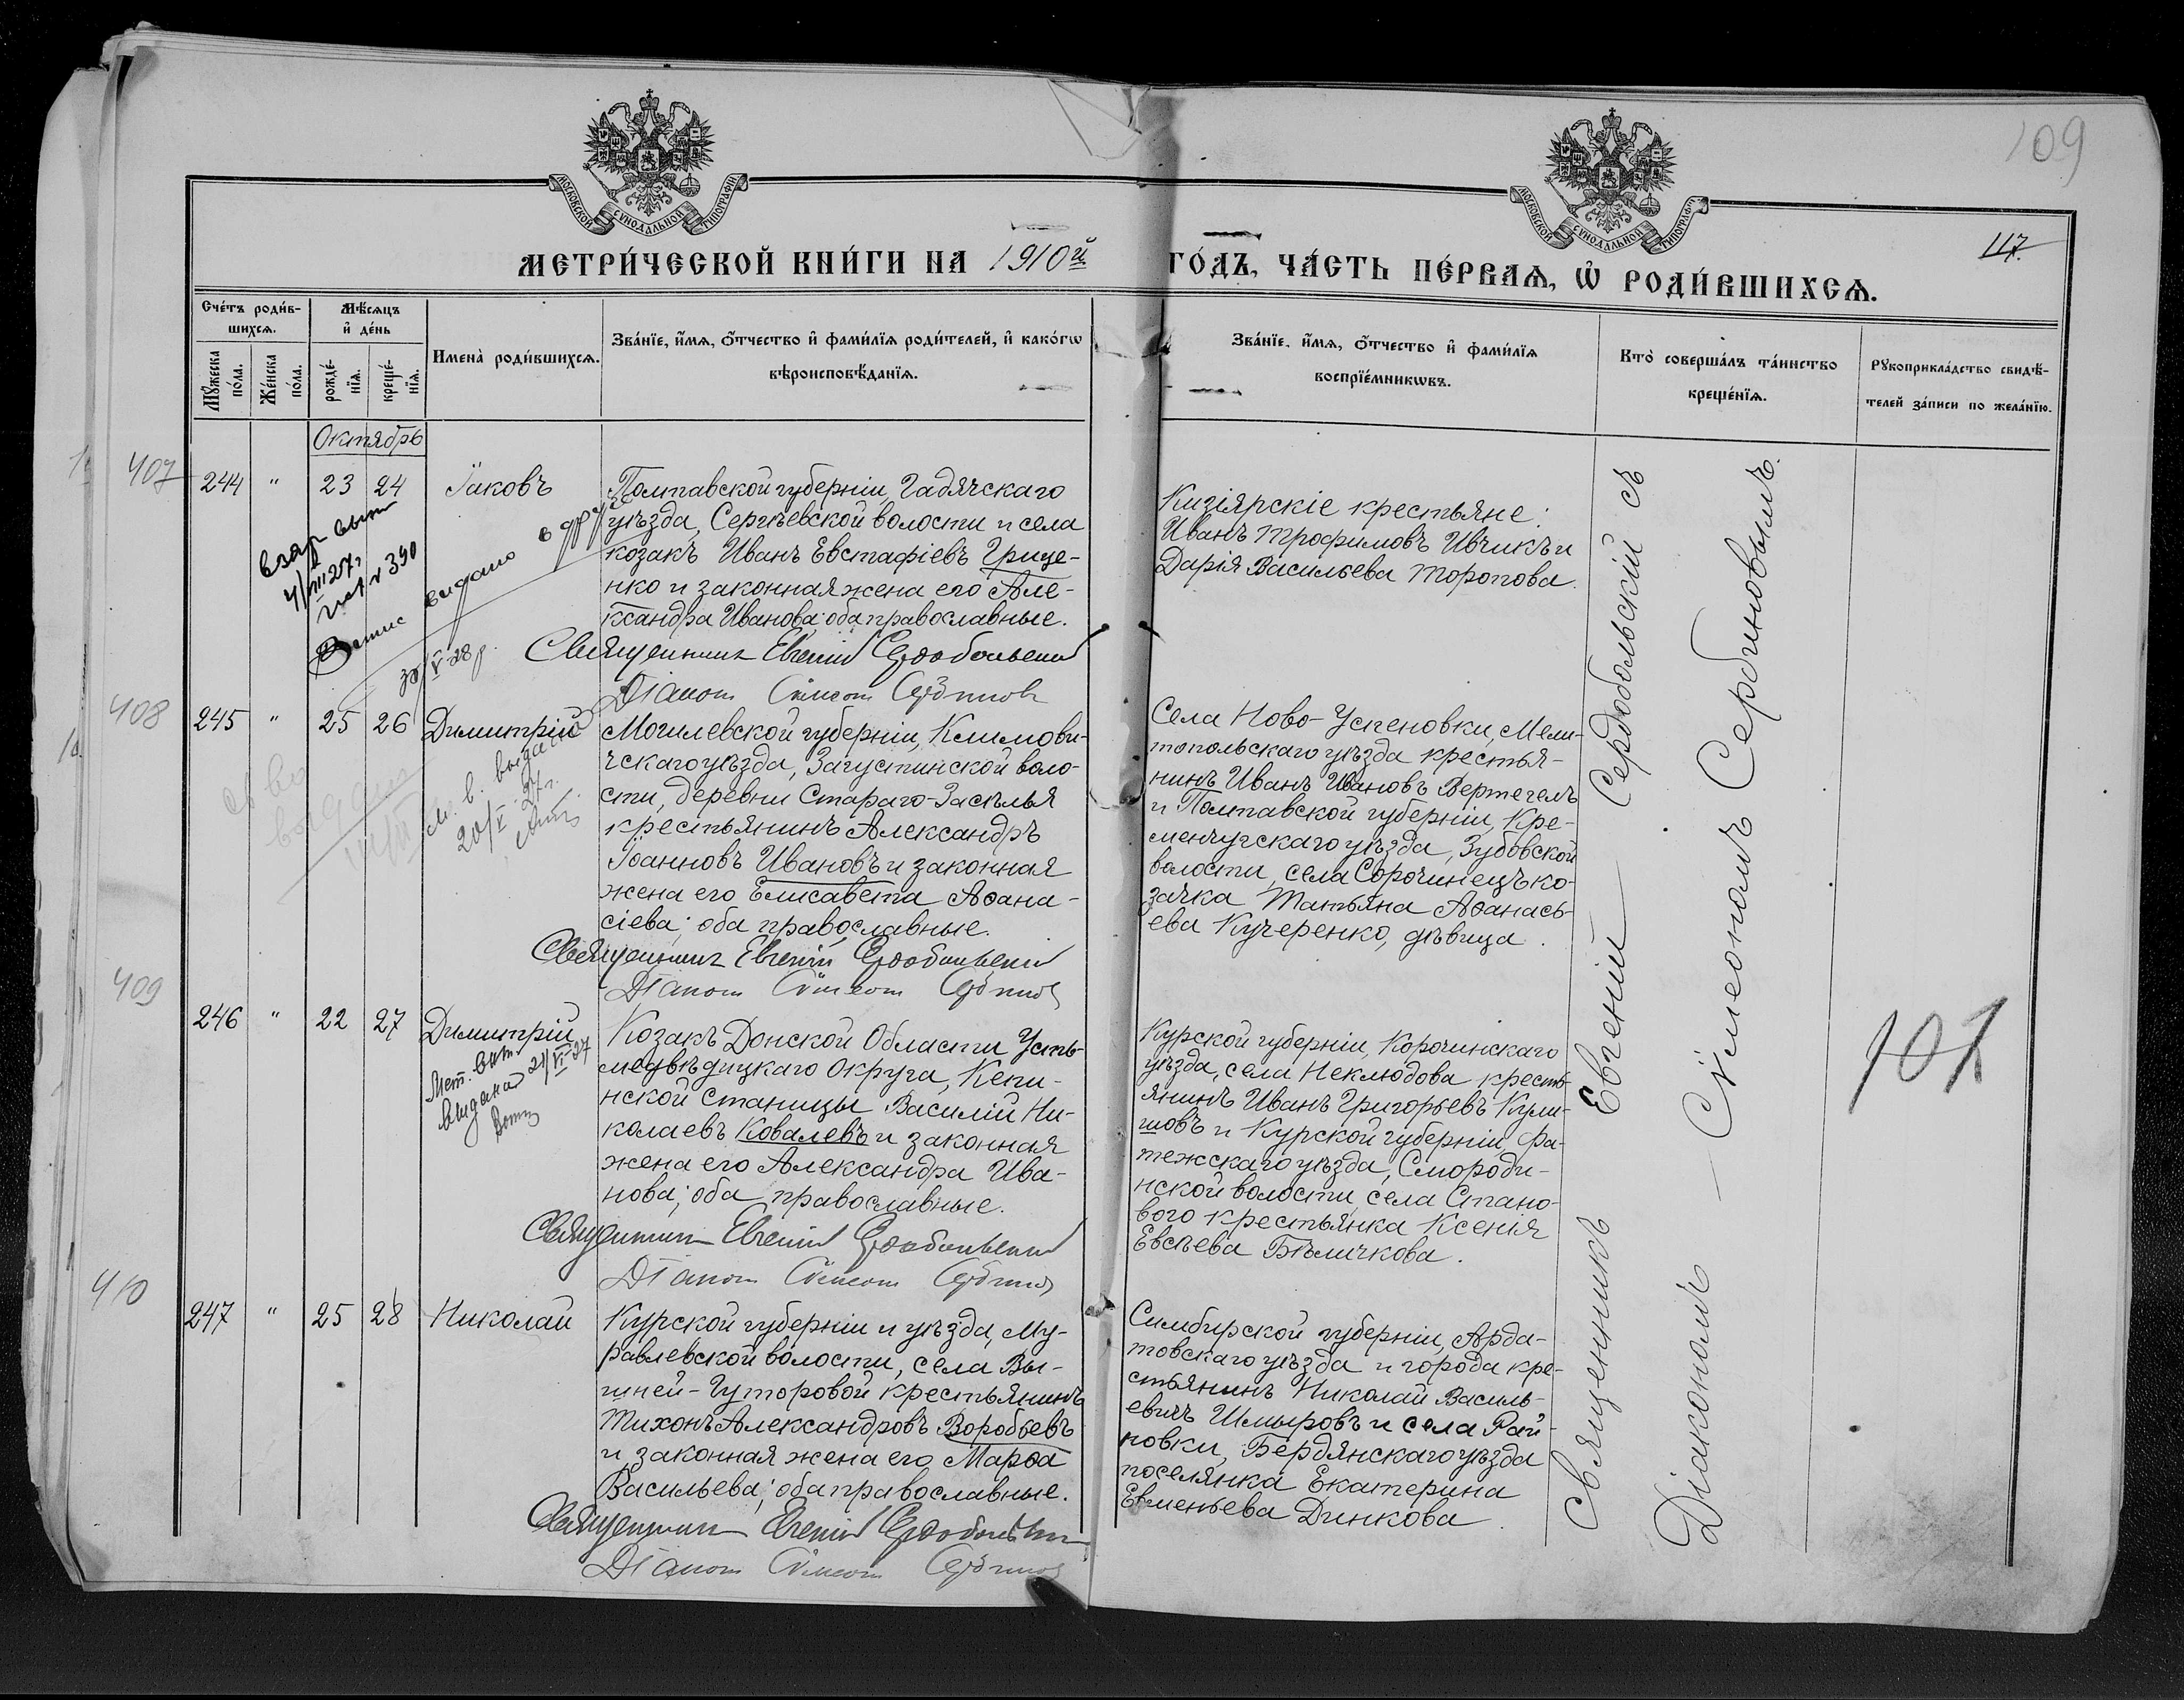 109
МОСКОВСКОЙ СѴНОДАЛЬНОЙ ТИПОГРАФІИ
МОСКОВСКОЙ СѴНОДАЛЬНОЙ ТИПОГРАФІИ
117.
МЕТРИ́ЧЕСКОЙ КНИ́ГИ НА 1910й ГО́ДЪ, ЧА́СТЬ ПЕ́РВАѦ, Ѡ҆ РОДИ́ВШИХСѦ.
Сче́тъ роди́в-
шихсѧ.
Мꙋ́жеска по́ла.
Же́нска по́ла.
Мѣ́сѧцъ
и҆ де́нь
рожде́-
нїѧ.
креще́-
нїѧ.
Имена̀ роди́вшихсѧ.
Зва́нїе, и҆́мѧ, ѻ҆́тчество и҆ фами́лїѧ роди́телей, и҆ како́гѡ
вѣроисповѣ́данїѧ.
Зва́нїе, и҆́мѧ, ѻ҆́тчество и҆ фами́лїѧ
воспрїе́мникѡвъ.
Кто̀ соверша́лъ та́инство
креще́нїѧ.
Рꙋкоприкла́дство свидѣ́-
телей за́писи по жела́нїю.
Октябрь
407
244 " 23 24 Іаковъ
Полтавской губерніи, Гадячскаго
уѣзда, Сергѣевской волости и села
козакъ Иванъ Евстафіевъ Грице-
нко и законная жена его Але-
ксандра Иванова; оба православные.
Священникъ Евгеній Сердобольскій
Діаконъ Сѵмеонъ Сербиновъ
Кизіярскіе крестьяне:
Иванъ Трофимовъ Ивчикъ и
Дарія Васильева Торопова.
№ 390
видано
30/V 28 р.
408
245 " 25 26 Димитрій
Могилевской губерніи, Климови-
чскаго уѣзда, Загустинской воло-
сти, деревни Стараго-Заселья
крестьянинъ Александръ
Іоанновъ Ивановъ и законная
жена его Елисавета Аѳана-
сіева; оба православные.
Священникъ Евгеній Сердобольскій
Діаконъ Сѵмеонъ Сербиновъ
Села Ново-Успеновки, Мели-
топольскаго уѣзда крестья-
нинъ Иванъ Ивановъ Вертегелъ
и Полтавской губерніи, Кре-
менчугскаго уѣзда, Зубовской
волости, села Сорочинецъ ко-
зачка Татьяна Аѳанась-
ева Кучеренко, дѣвица.
20/V 27г.
409
246 " 22 27 Димитрій
Мет. вит.
видана 21/VI-27
Козакъ Донской Области Усть-
медвѣдицкаго Округа, Кепи-
нской станицы Василій Ни-
колаевъ Ковалевъ и законная
жена его Александра Ива-
нова; оба православные.
Священникъ Евгеній Сердобольскій
Діаконъ Сѵмеонъ Сербиновъ
Курской губерніи, Корочинскаго
уѣзда, села Неклюдова кресть-
янинъ Иванъ Григорьевъ Кули-
шовъ и Курской губерніи, Фа-
тежскаго уѣзда, Смороди-
нской волости, села Стано-
вого крестьянка Ксенія
Евсѣева Бѣличкова.
410
247 " 25 28 Николай
Курской губерніи и уѣзда, Му-
равлевской волости, села Вы-
шней-Гуторовой крестьянинъ
Тихонъ Александровъ Воробьевъ
и законная жена его Марѳа
Васильева; оба православные.
Священникъ Евгеній Сердобольскій
Діаконъ Сѵмеонъ Сербиновъ
Симбирской губерніи, Арда-
товскаго уѣзда и города кре-
стьянинъ Николай Василь-
евичъ Шмыровъ и села Рай-
новки, Бердянскаго уѣзда
поселянка Екатерина
Евменьева Динкова.
Священникъ Евгеній Сердобольскій съ
Діакономъ Сѵмеономъ Сербиновымъ.
101